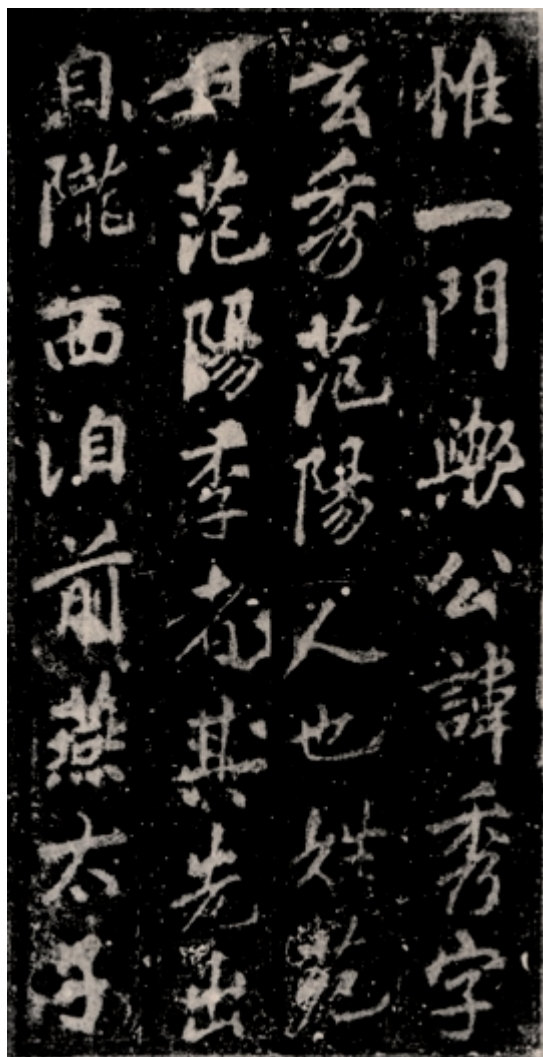 惟一門歟公諱秀字
玄秀范陽人也姓苑
曰范陽李者其先出
自隴西洎前燕太子